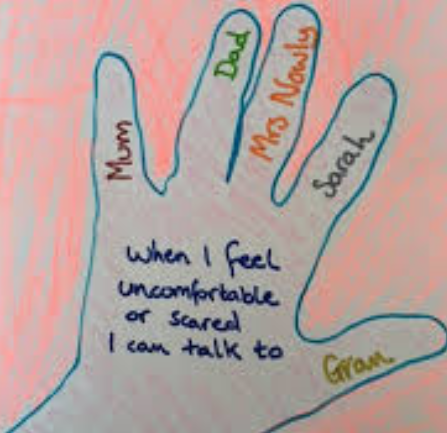 Mum
Dad
Mrs Nowly
Sarah
When I feel
uncomfortable
or scared
I can talk to
Gran